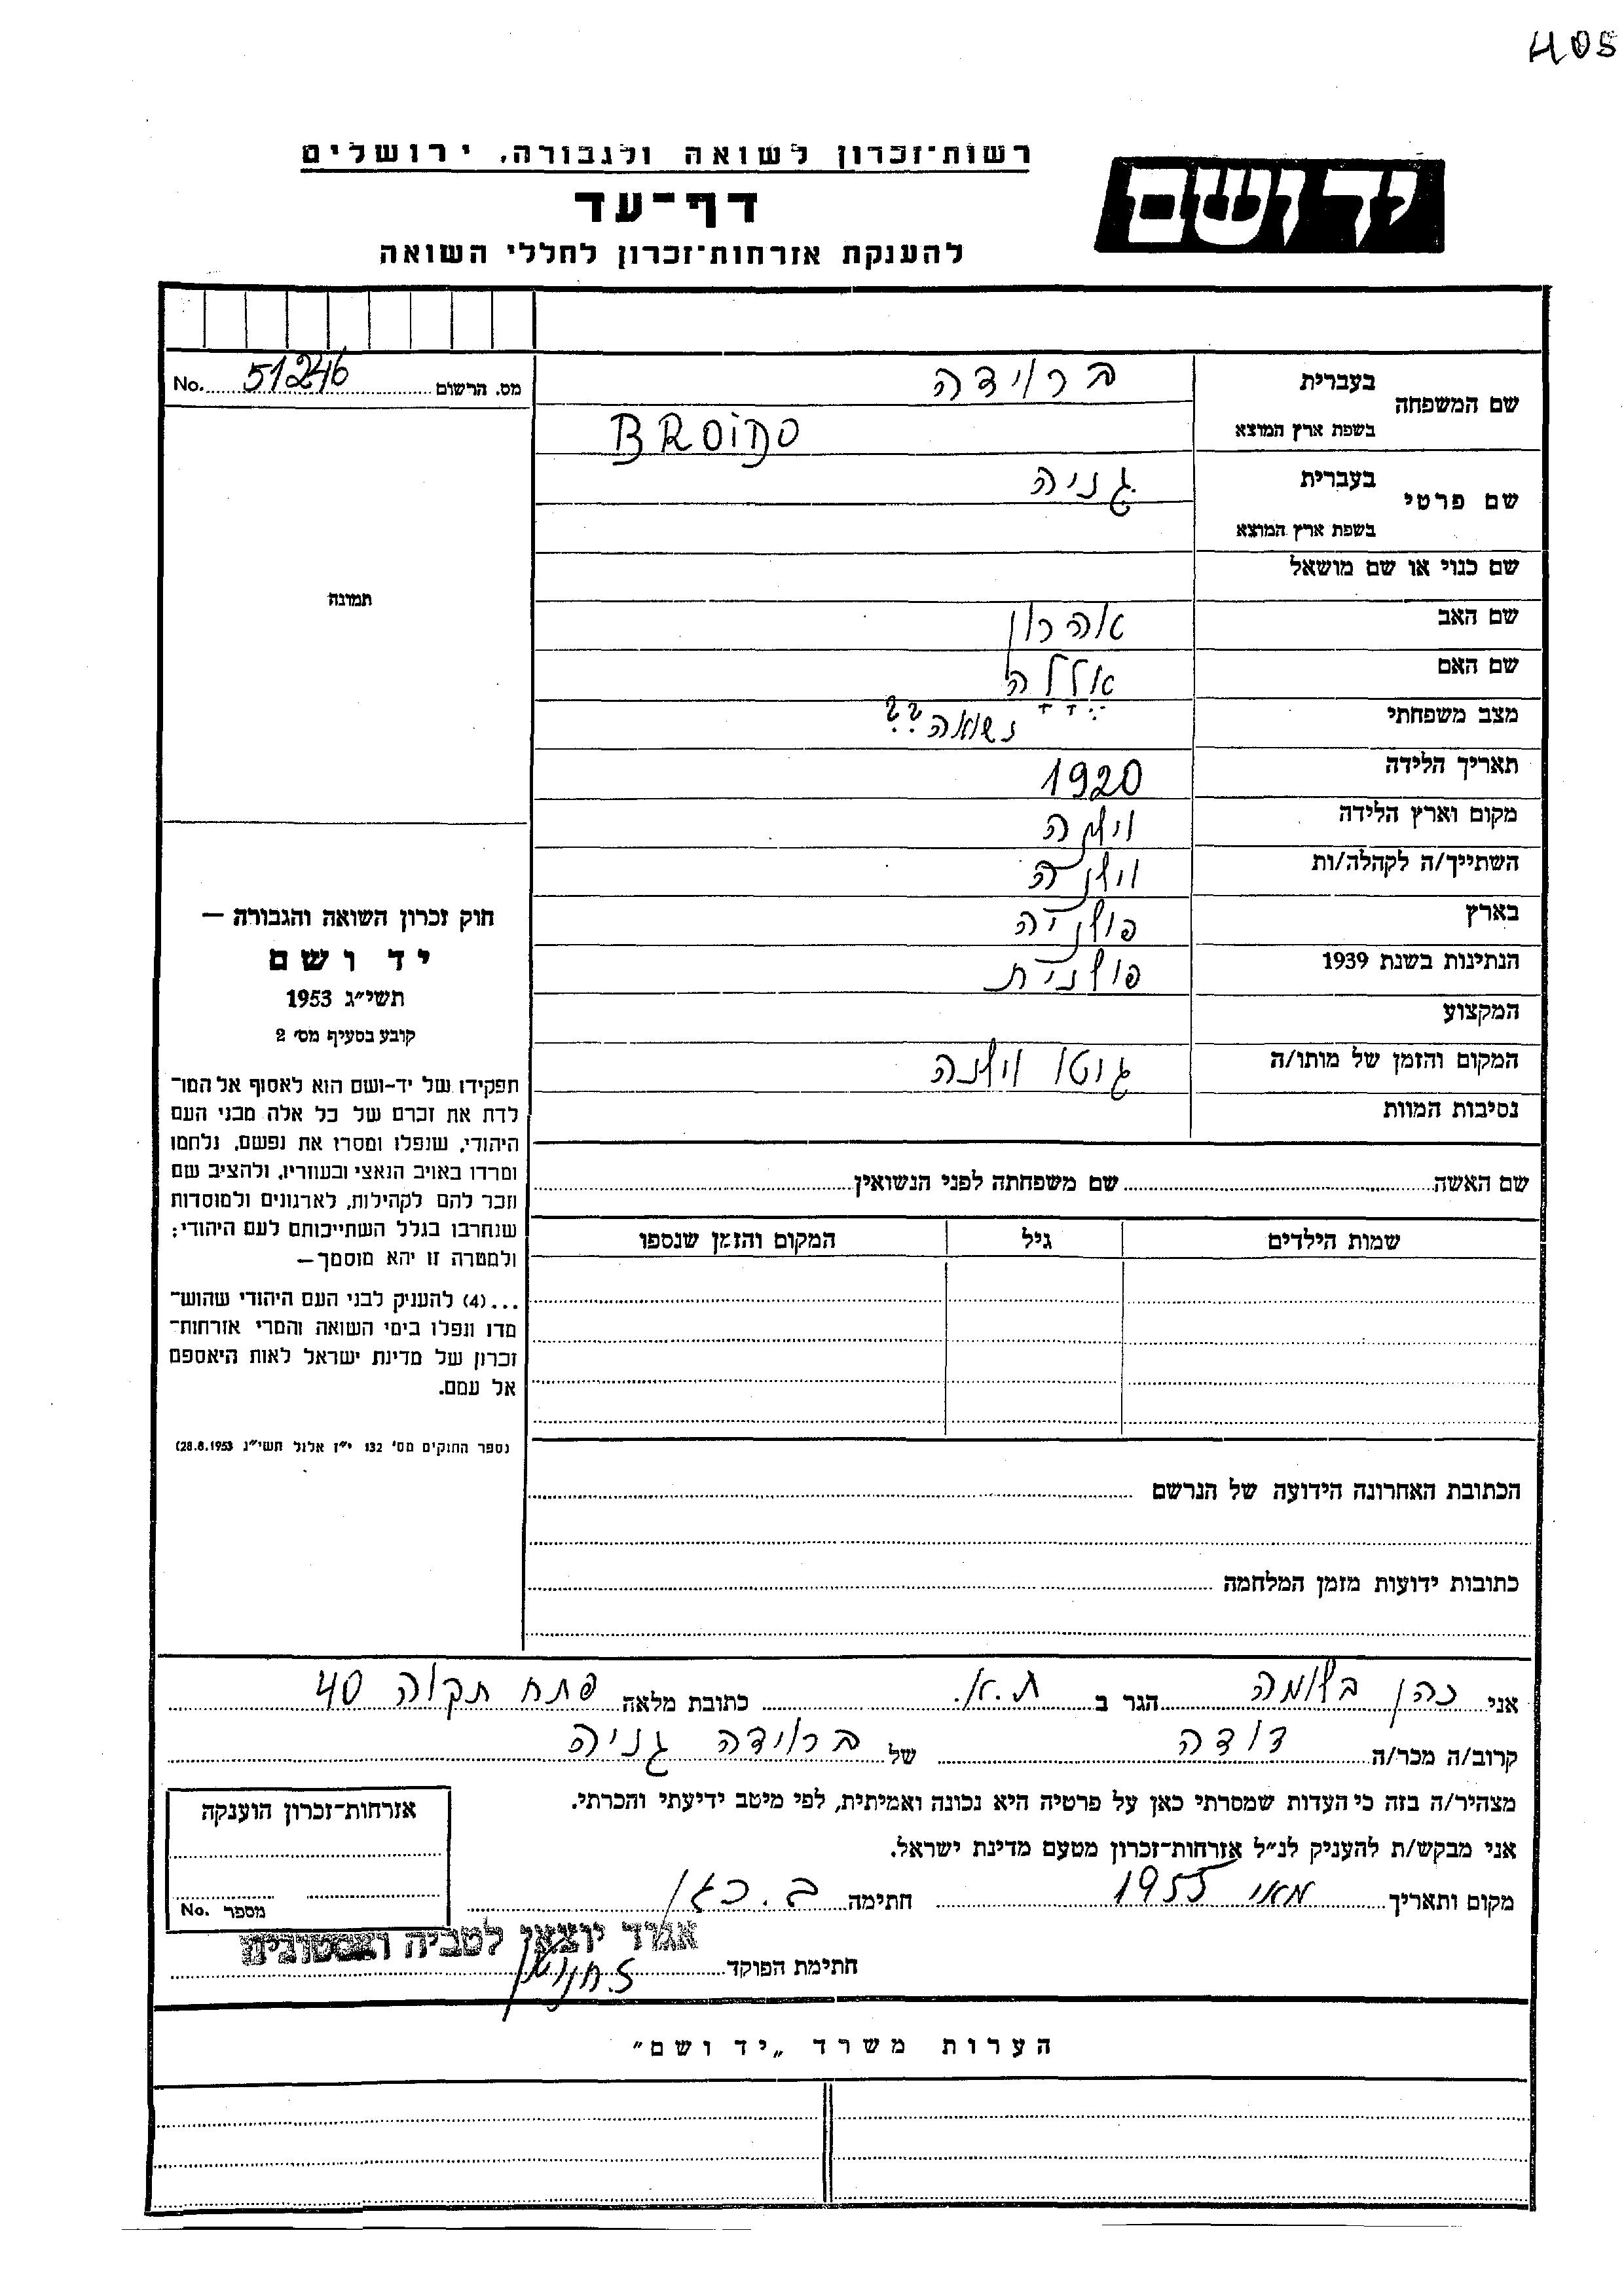 405
רשות־זכרון לשואה ולגבורה, ירושלים
יד ושם
דף־עד
להענקת אזרחות־זכרון לחללי השואה
מס. הרשום 51246 No.
שם המשפחה
בעברית ברוידה
בשפת ארץ המוצא BROIDO
שם פרטי
בעברית גניה
בשפת ארץ המוצא
שם כנוי או שם מושאל
שם האב אהרון
שם האם אללה
מצב משפחתי נשואה ??
תאריך הלידה 1920
מקום וארץ הלידה וילנה
השתייך/ה לקהלה/ות וילנה
בארץ פולניה
הנתינות בשנת 1939 פולנית
המקצוע
המקום והזמן של מותו/ה גוטו וילנה
נסיבות המוות
שם האשה שם משפחתה לפני הנשואין
שמות הילדים גיל המקום והזמן שנספו
הכתובת האחרונה הידועה של הנרשם
כתובות ידועות מזמן המלחמה
תמונה
חוק זכרון השואה והגבורה –
יד ושם
תשי״ג 1953
קובע בסעיף מס׳ 2
תפקידו של יד-ושם הוא לאסוף אל המו־
לדת את זכרם של כל אלה מבני העם
היהודי, שנפלו ומסרו את נפשם, נלחמו
ומרדו באויב הנאצי ובעוזריו, ולהציב שם
וזכר להם לקהילות, לארגונים ולמוסדות
שנחרבו בגלל השתייכותם לעם היהודי;
ולמטרה זו יהא מוסמך –
...(4) להעניק לבני העם היהודי שהוש־
מדו ונפלו בימי השואה והמרי אזרחות־
זכרון של מדינת ישראל לאות היאספם
אל עמם.
נספר החוקים מס׳ 132 י״ז אלול תשי״ג 28.8.1953)
אני כהן בלומה הגר ב ת.א. כתובת מלאה פתח תקוה 40
קרוב/ה מכר/ה דודה של ברוידה גניה
מצהיר/ה בזה כי העדות שמסרתי כאן על פרטיה היא נכונה ואמיתית, לפי מיטב ידיעתי והכרתי.
אני מבקש/ת להעניק לנ״ל אזרחות־זכרון מטעם מדינת ישראל.
מקום ותאריך מאי 1955 חתימה ב. כהן
אזרחות־זכרון הוענקה
מספר No.
אגוד יוצאי לטביה ואסטוניה
חתימת הפוקד
הערות משרד „יד ושם״